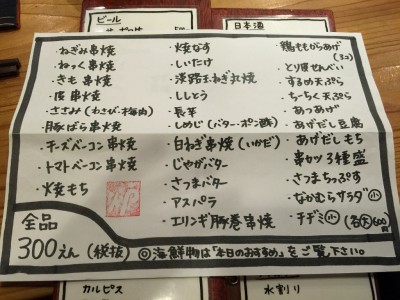 ビール
日本酒
・ねぎみ串焼
・ねっく串焼
・きも串焼
・皮串焼
・ささみ(わさび・梅肉)
・豚ばら串焼
・チーズベーコン串焼
・トマトベーコン串焼
・焼もち
・焼なす
・しいたけ
・淡路玉ねぎ丸焼
・ししとう
・長芋
・しめじ(バター・ポン酢)
・白ねぎ串焼(いかだ)
・じゃがバター
・さつまバター
・アスパラ
・エリンギ豚巻串焼
・鶏ももからあげ
・とり皮せんべい
・するめ天ぷら
・ちーちく天ぷら
・あつあげ
・あげだし豆腐
・あげだしもち
・串カツ3種盛
・さつまちっぷす
・なかむらサラダ小
・チヂミ小 (各大600円)
全品
300えん(税抜) ◎海鮮物は「本日のおすすめ」をご覧下さい。
カルピス
水割り